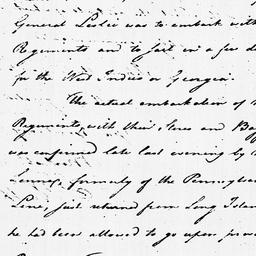 General Leslie was to embark with
Regiments and to sail in a few d
for the West Indies or Georgia.
The actual embarkation of
Regiments, with their Stores and Bag
was confirmed late last evening by
formerly of the Pennsylva
Line, just returned from Long Islan
he had been allowed to go upon